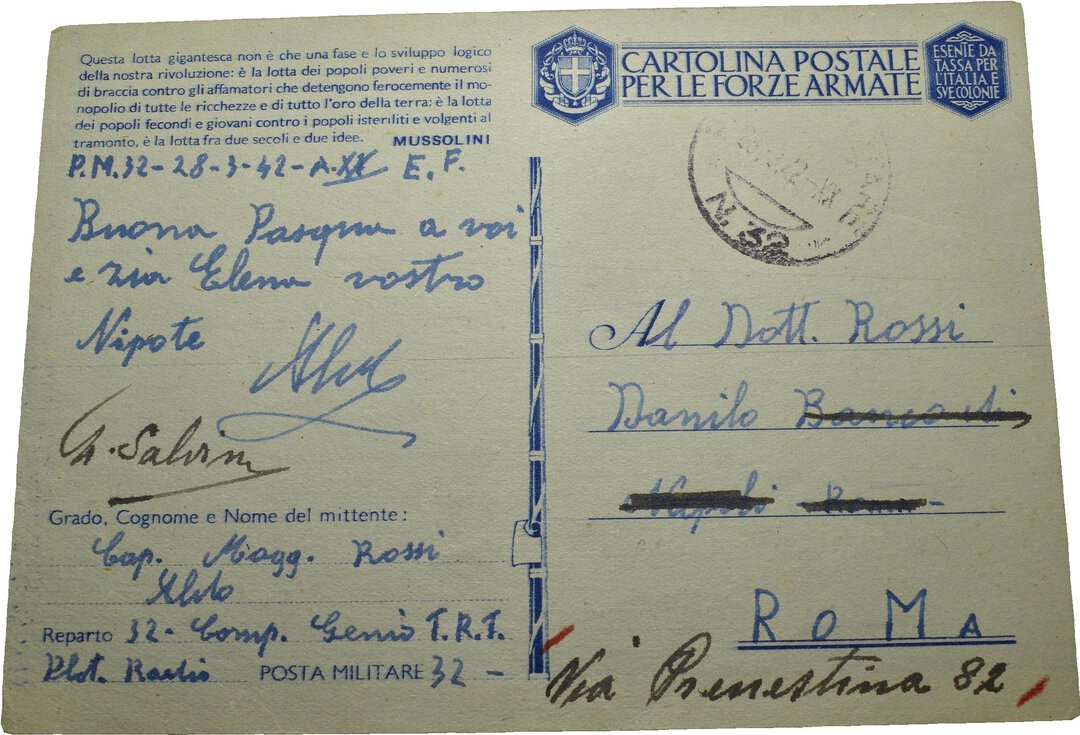 Questa lotta gigantesca non è che una fase e lo sviluppo logico
della nostra rivoluzione: è la lotta dei popoli poveri e numerosi
di braccia contro gli affamatori che detengono ferocemente il mo-
nopolio di tutte le ricchezze e di tutto l'oro della terra: è la lotta
dei popoli fecondi e giovani contro i popoli isteriliti e volgenti al
tramonto, è la lotta fra due secoli e due idee. MUSSOLINI
P.M.32-28-3-42-A.XX E.F.
Buona Pasqua a voi
e zia Elena vostro
Nipote
Aldo
Salvin
Grado, Cognome e Nome del mittente:
Cap. Magg. Rossi
Aldo
Reparto 32- Comp. Genio T.R.T.
Plot. Radio POSTA MILITARE 32 -
CARTOLINA POSTALE
PER LE FORZE ARMATE
ESENTE DA
TASSA PER
L'ITALIA E
SVE COLONIE
N. 32
Al Dott. Rossi
Danilo
Napoli Roma -
ROMA
Via Prenestina 82